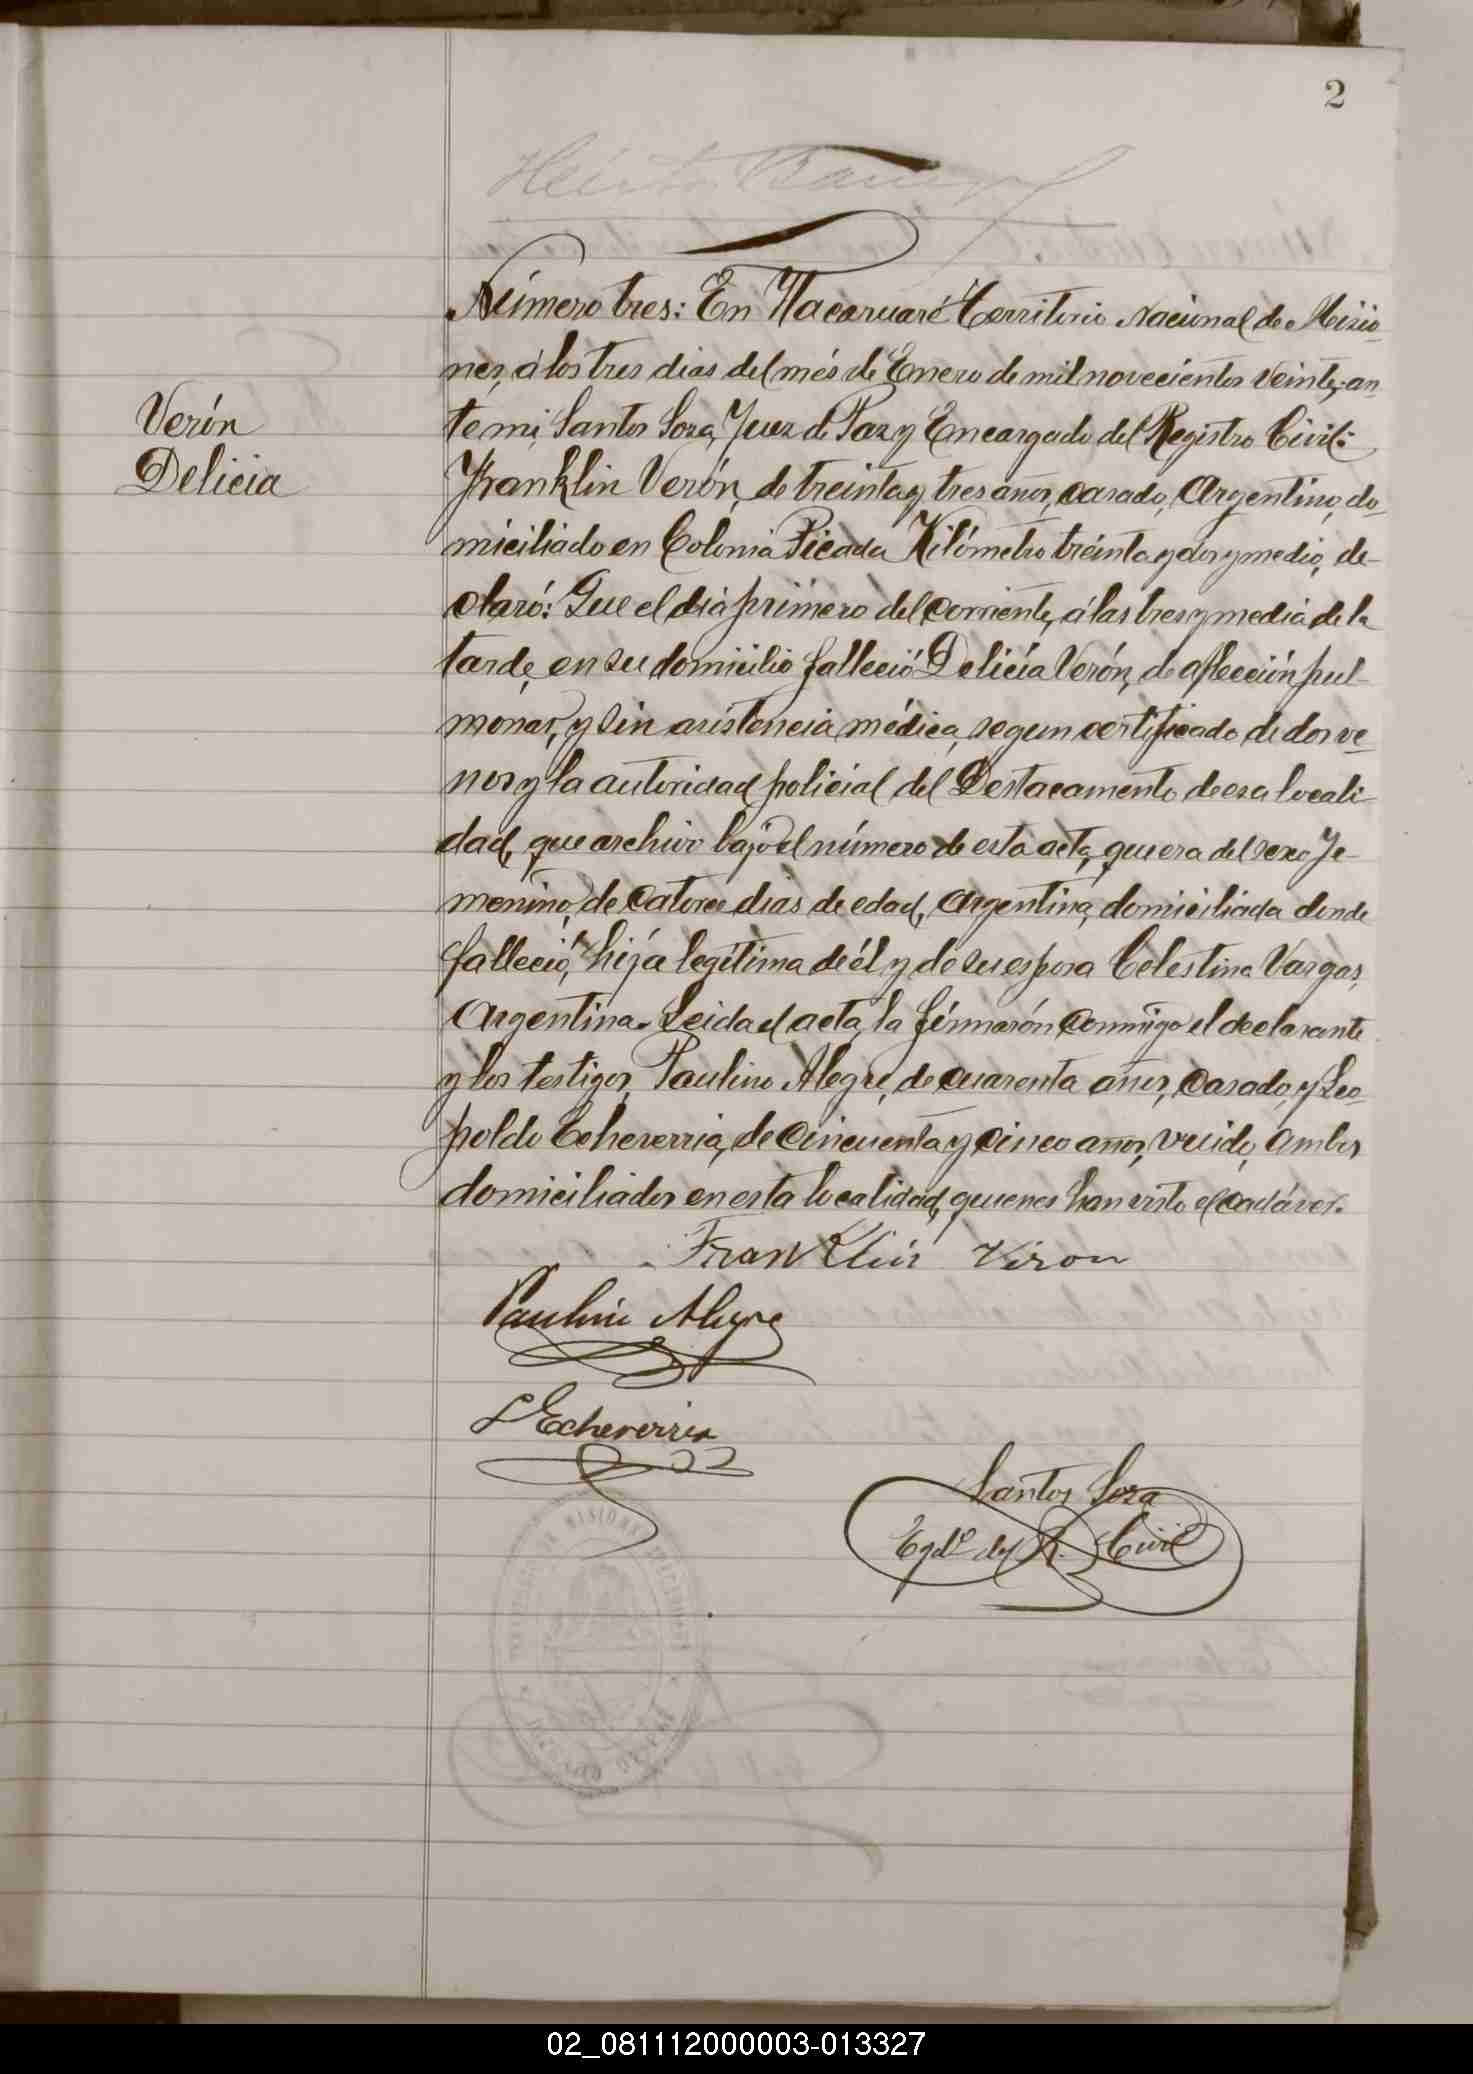 2
Verón
Delicia
Número tres: En Itacaruaré Territorio Nacional de Misio-
nes, á los tres dias del més de Enero de mil novecientos veinte, an-
te mi, Santos Soza, Juez de Paz y Encargado del Registro Civil:
Franklin Verón, de treinta y tres años, casado, Argentino, do-
miciliado en Colonia Picada Kilómetro treinta y dos y medio, de-
claró: Que el dia primero del corriente, á las tres y media de la
tarde, en su domicilio falleció Delicia Verón, de afección pul-
monar, y sin asistencia médica, segun certificado de dos ve-
nos y la autoridad policial del Destacamento de esa locali-
dad, que archivo bajo el número de esta acta, que era del sexo fe-
menino, de catorce dias de edad, Argentina, domiciliada donde
falleció, hija legítima de él y de su esposa Celestina Vargas,
Argentina. Leida el acta, la firmarón conmigo el declarante
y los testigos, Paulino Alegre, de cuarenta años, casado, y Leo-
poldo Echeverria, de cincuenta y cinco años, viudo, ambos
domiciliados en esta localidad, quienes han visto el cadáver.
Franklin Viron
Paulino Alegre
L Echeverria
Santos Soza
Egdo del R. Civil
02_081112000003-013327